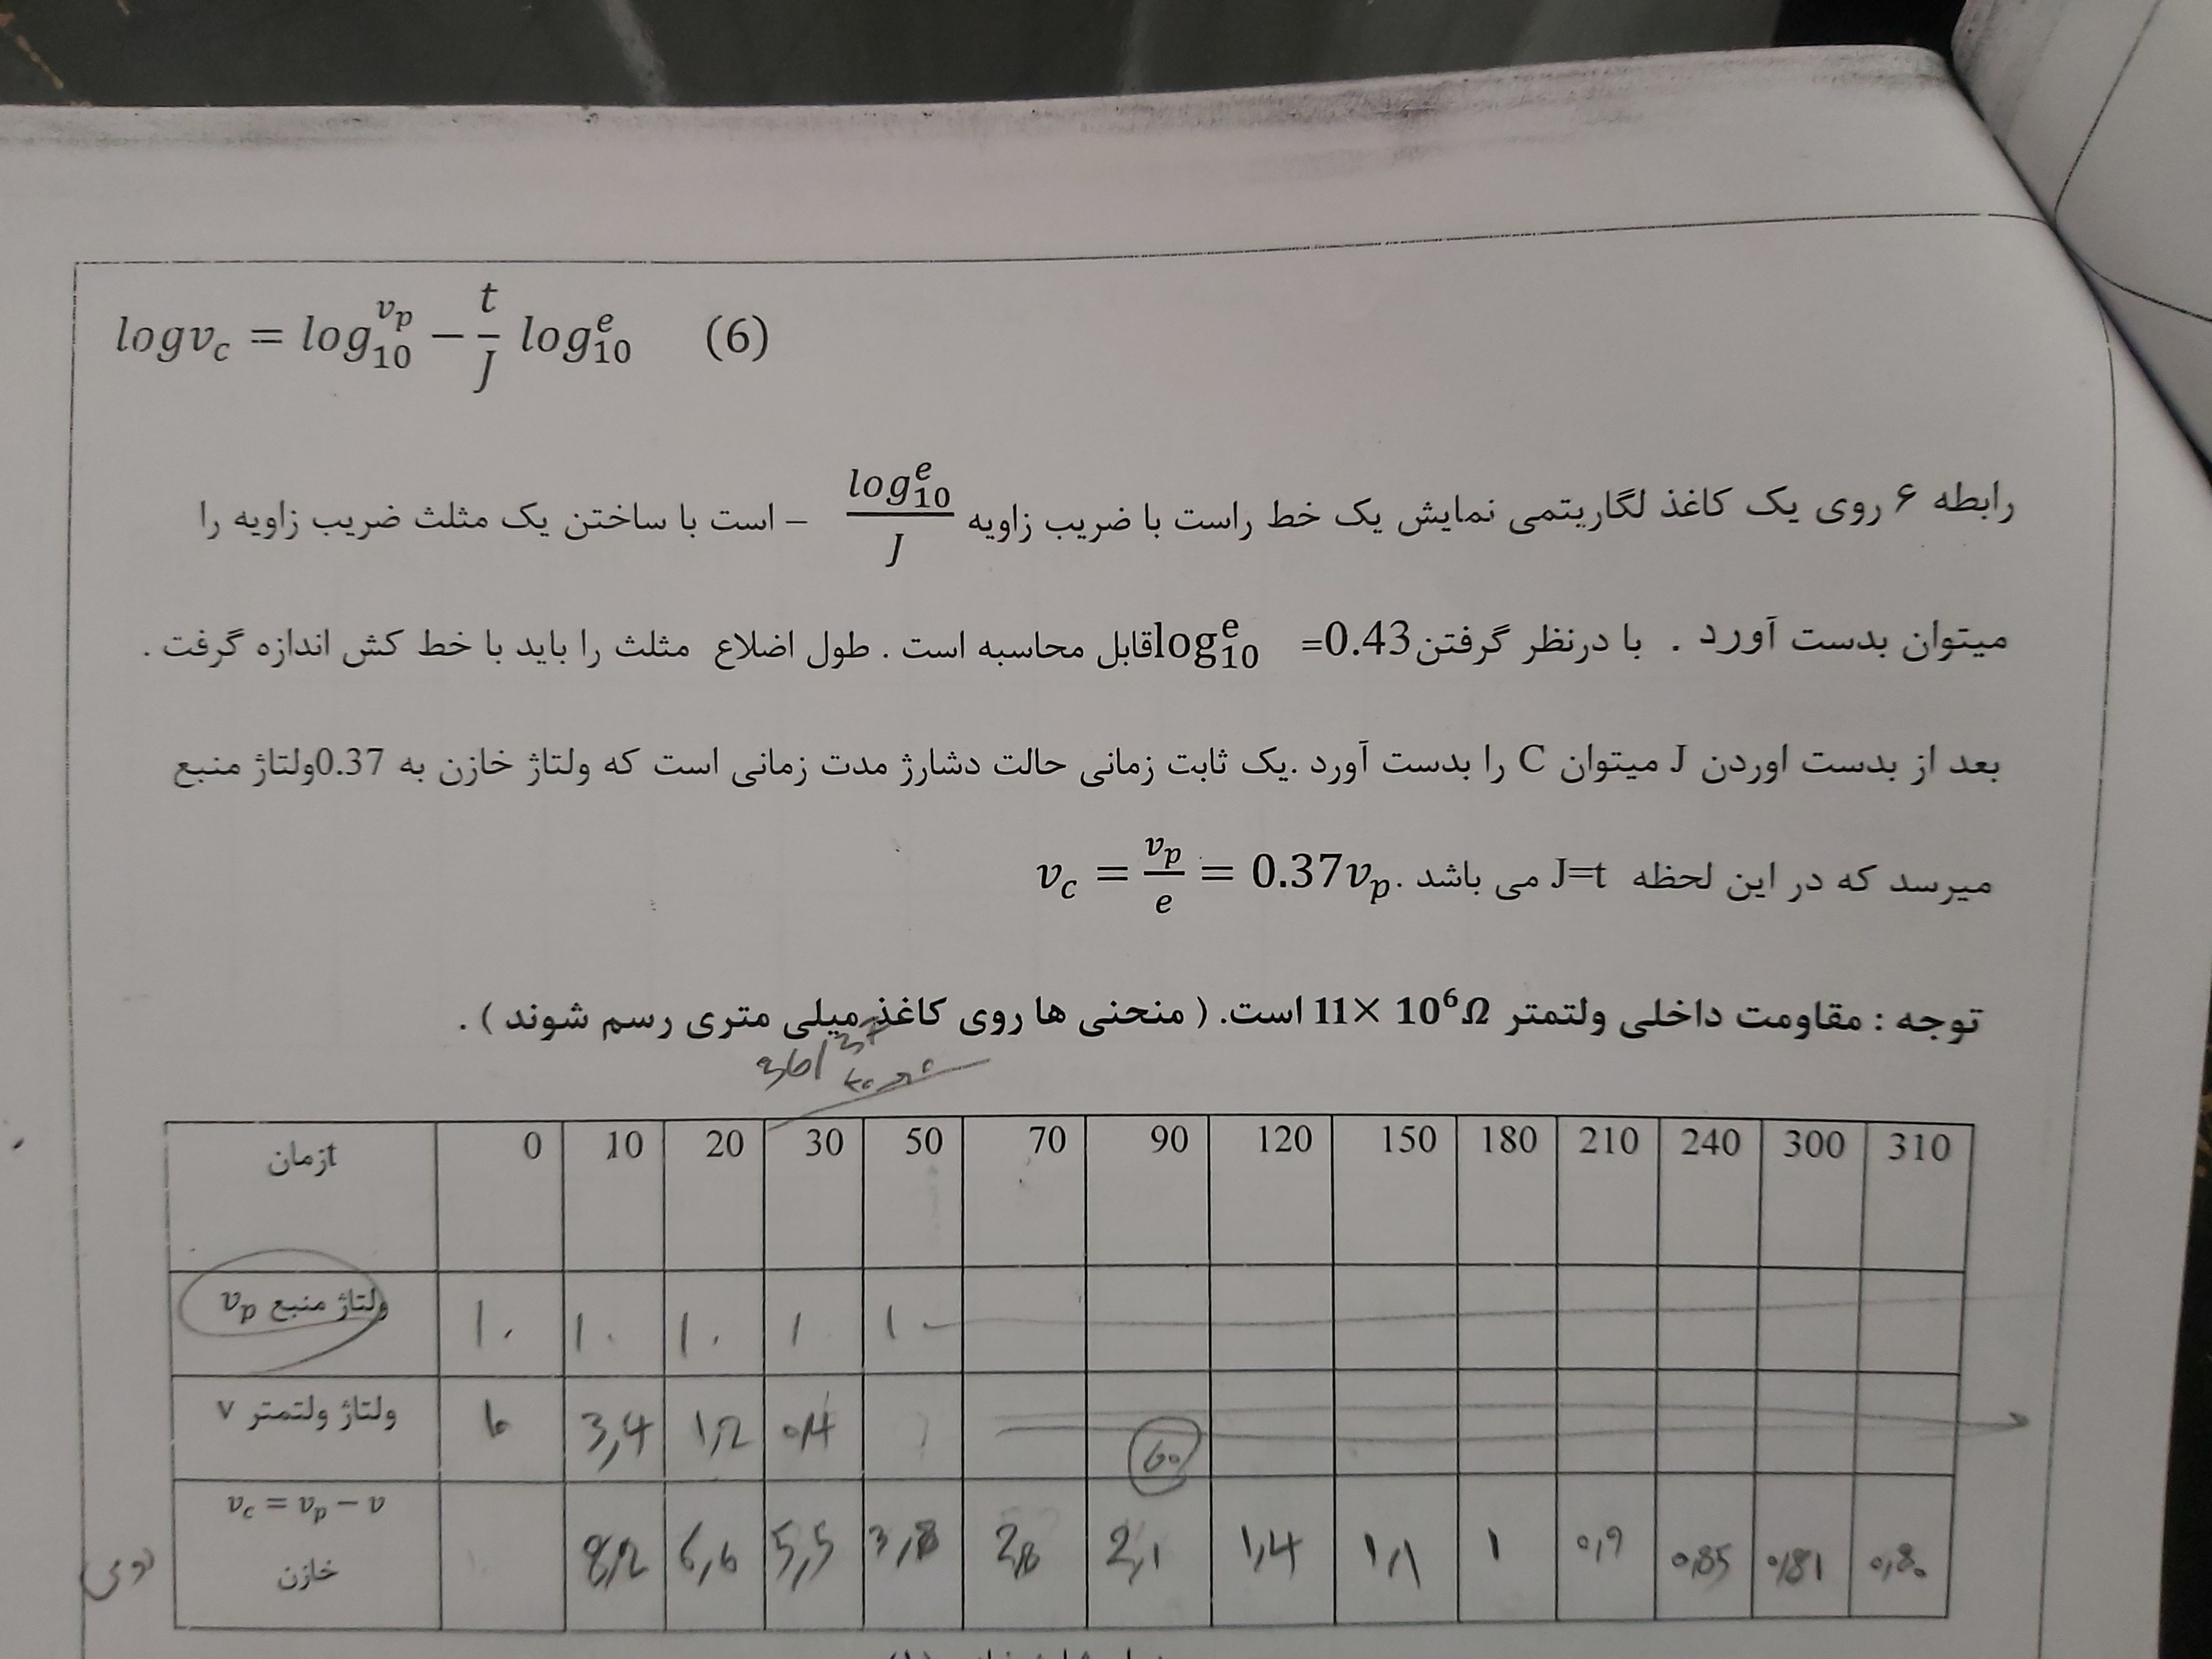 logv_c = log_10^{v_p} − t/J log_10^e (6)
رابطه ۶ روی یک کاغذ لگاریتمی نمایش یک خط راست با ضریب زاویه log_10^e/J – است با ساختن یک مثلث ضریب زاویه را
میتوان بدست آورد . با درنظر گرفتن log_10^e =0.43 قابل محاسبه است . طول اضلاع مثلث را باید با خط کش اندازه گرفت .
بعد از بدست اوردن J میتوان C را بدست آورد .یک ثابت زمانی حالت دشارژ مدت زمانی است که ولتاژ خازن به 0.37ولتاژ منبع
میرسد که در این لحظه J=t می باشد . v_c = v_p/e = 0.37v_p
توجه : مقاومت داخلی ولتمتر 11× 10⁶Ω است. ( منحنی ها روی کاغذ میلی متری رسم شوند ) .
زمانt 0 10 20 30 50 70 90 120 150 180 210 240 300 310
ولتاژ منبع v_p ۱۰ ۱۰ ۱۰ ۱۰ ۱۰
ولتاژ ولتمتر v 3,4 1,2 0,4 60
v_c = v_p − v
خازن 8,2 6,6 5,5 3,8 2,1 1,4 1,1 1 0,9 0,85 0,81 0,80